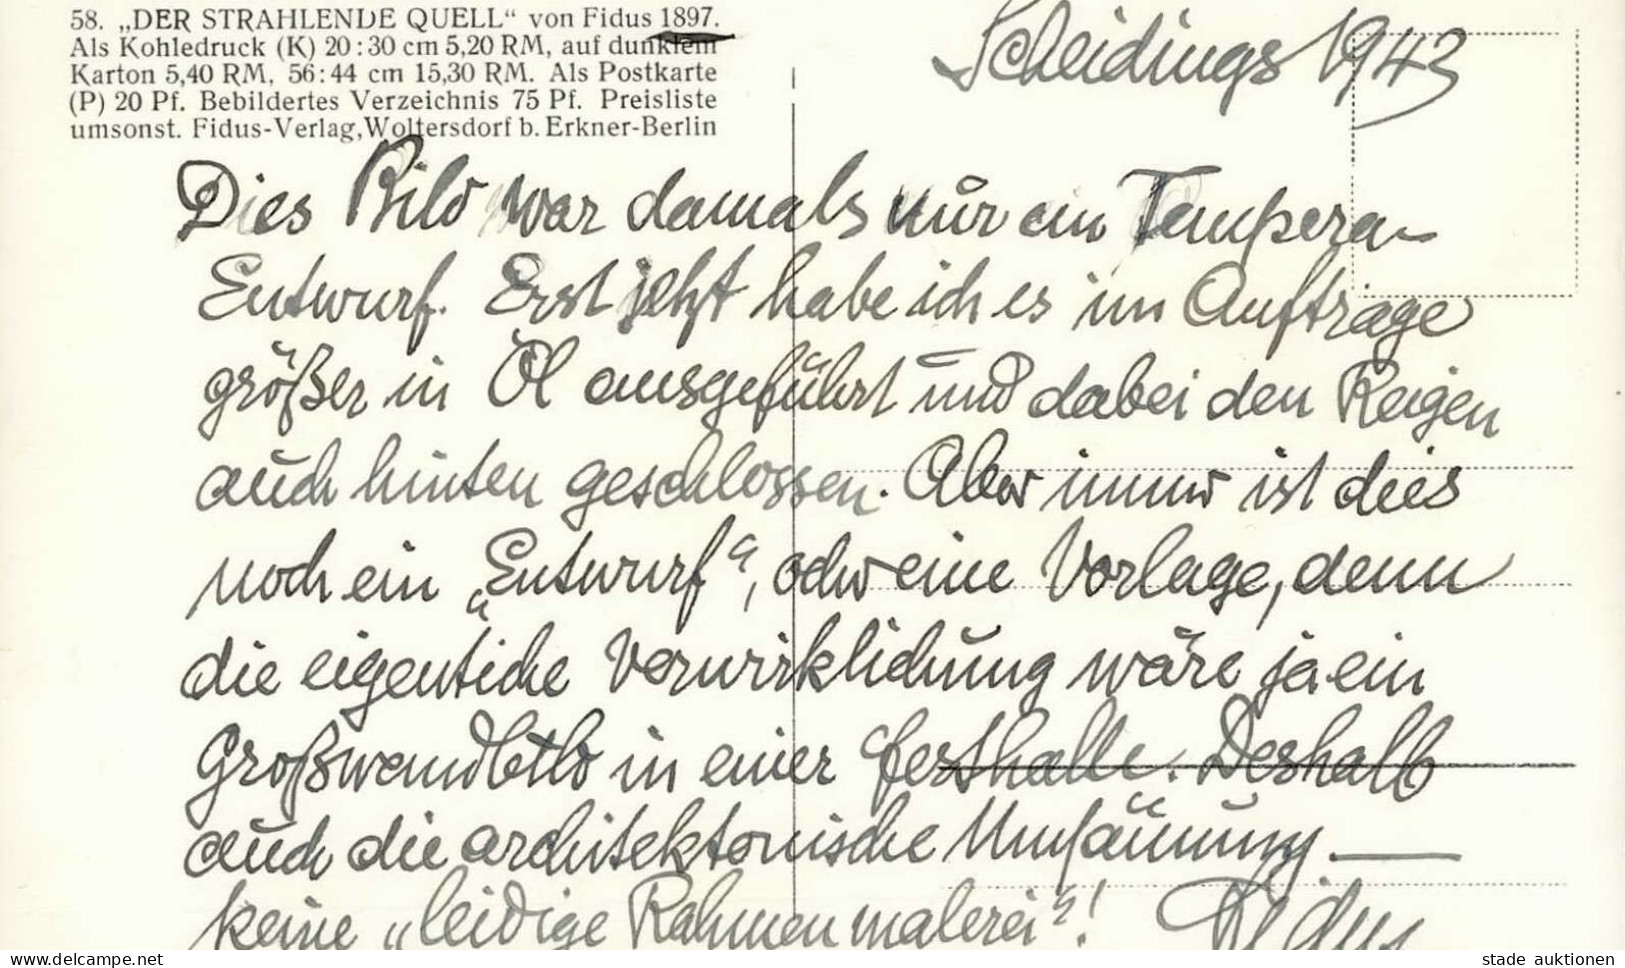 58. „DER STRAHLENDE QUELL“ von Fidus 1897.
Als Kohledruck (K) 20:30 cm 5,20 RM, auf dunklem
Karton 5,40 RM, 56:44 cm 15,30 RM. Als Postkarte
(P) 20 Pf. Bebildertes Verzeichnis 75 Pf. Preisliste
umsonst. Fidus-Verlag, Woltersdorf b. Erkner-Berlin
Scheidings 1943
Dies Bild war damals nur ein Tempera-
Entwurf. Erst jetzt habe ich es im Auftrage
größer in Öl ausgeführt und dabei den Reigen
auch hinten geschlossen. Aber immer ist dies
noch ein „Entwurf“, oder eine Vorlage, denn
die eigentliche Verwirklichung wäre ja ein
Großwandbild in einer Festhalle. Deshalb
auch die architektonische Umsäumung. —
keine „leidige Rahmenmalerei“! Fidus
www.delcampe.net
stade auktionen